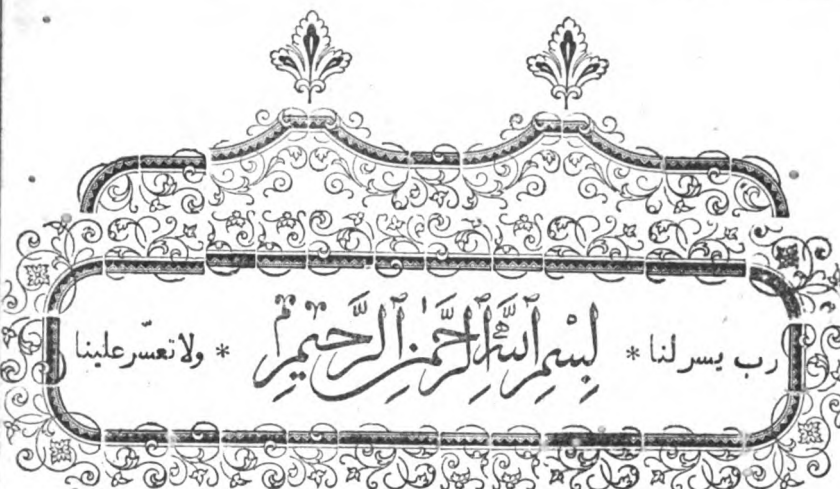 رب يسر لنا * بِسْمِ ٱللَّهِ ٱلرَّحْمَٰنِ ٱلرَّحِيمِ * ولا تعسّر علينا